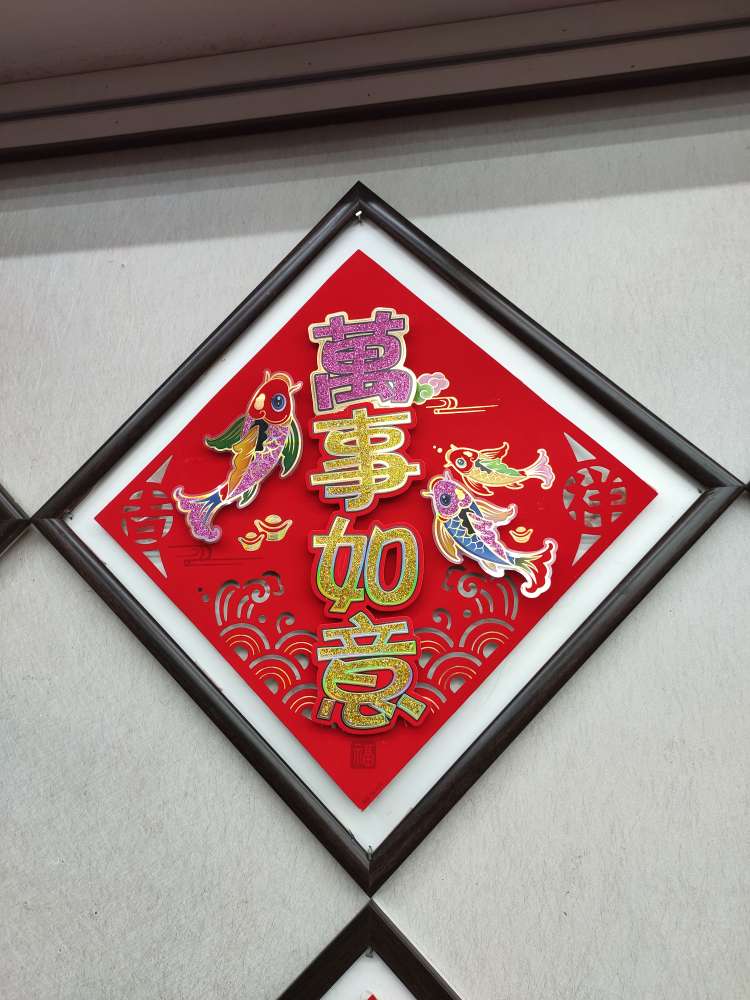 萬事如意
吉
祥
福